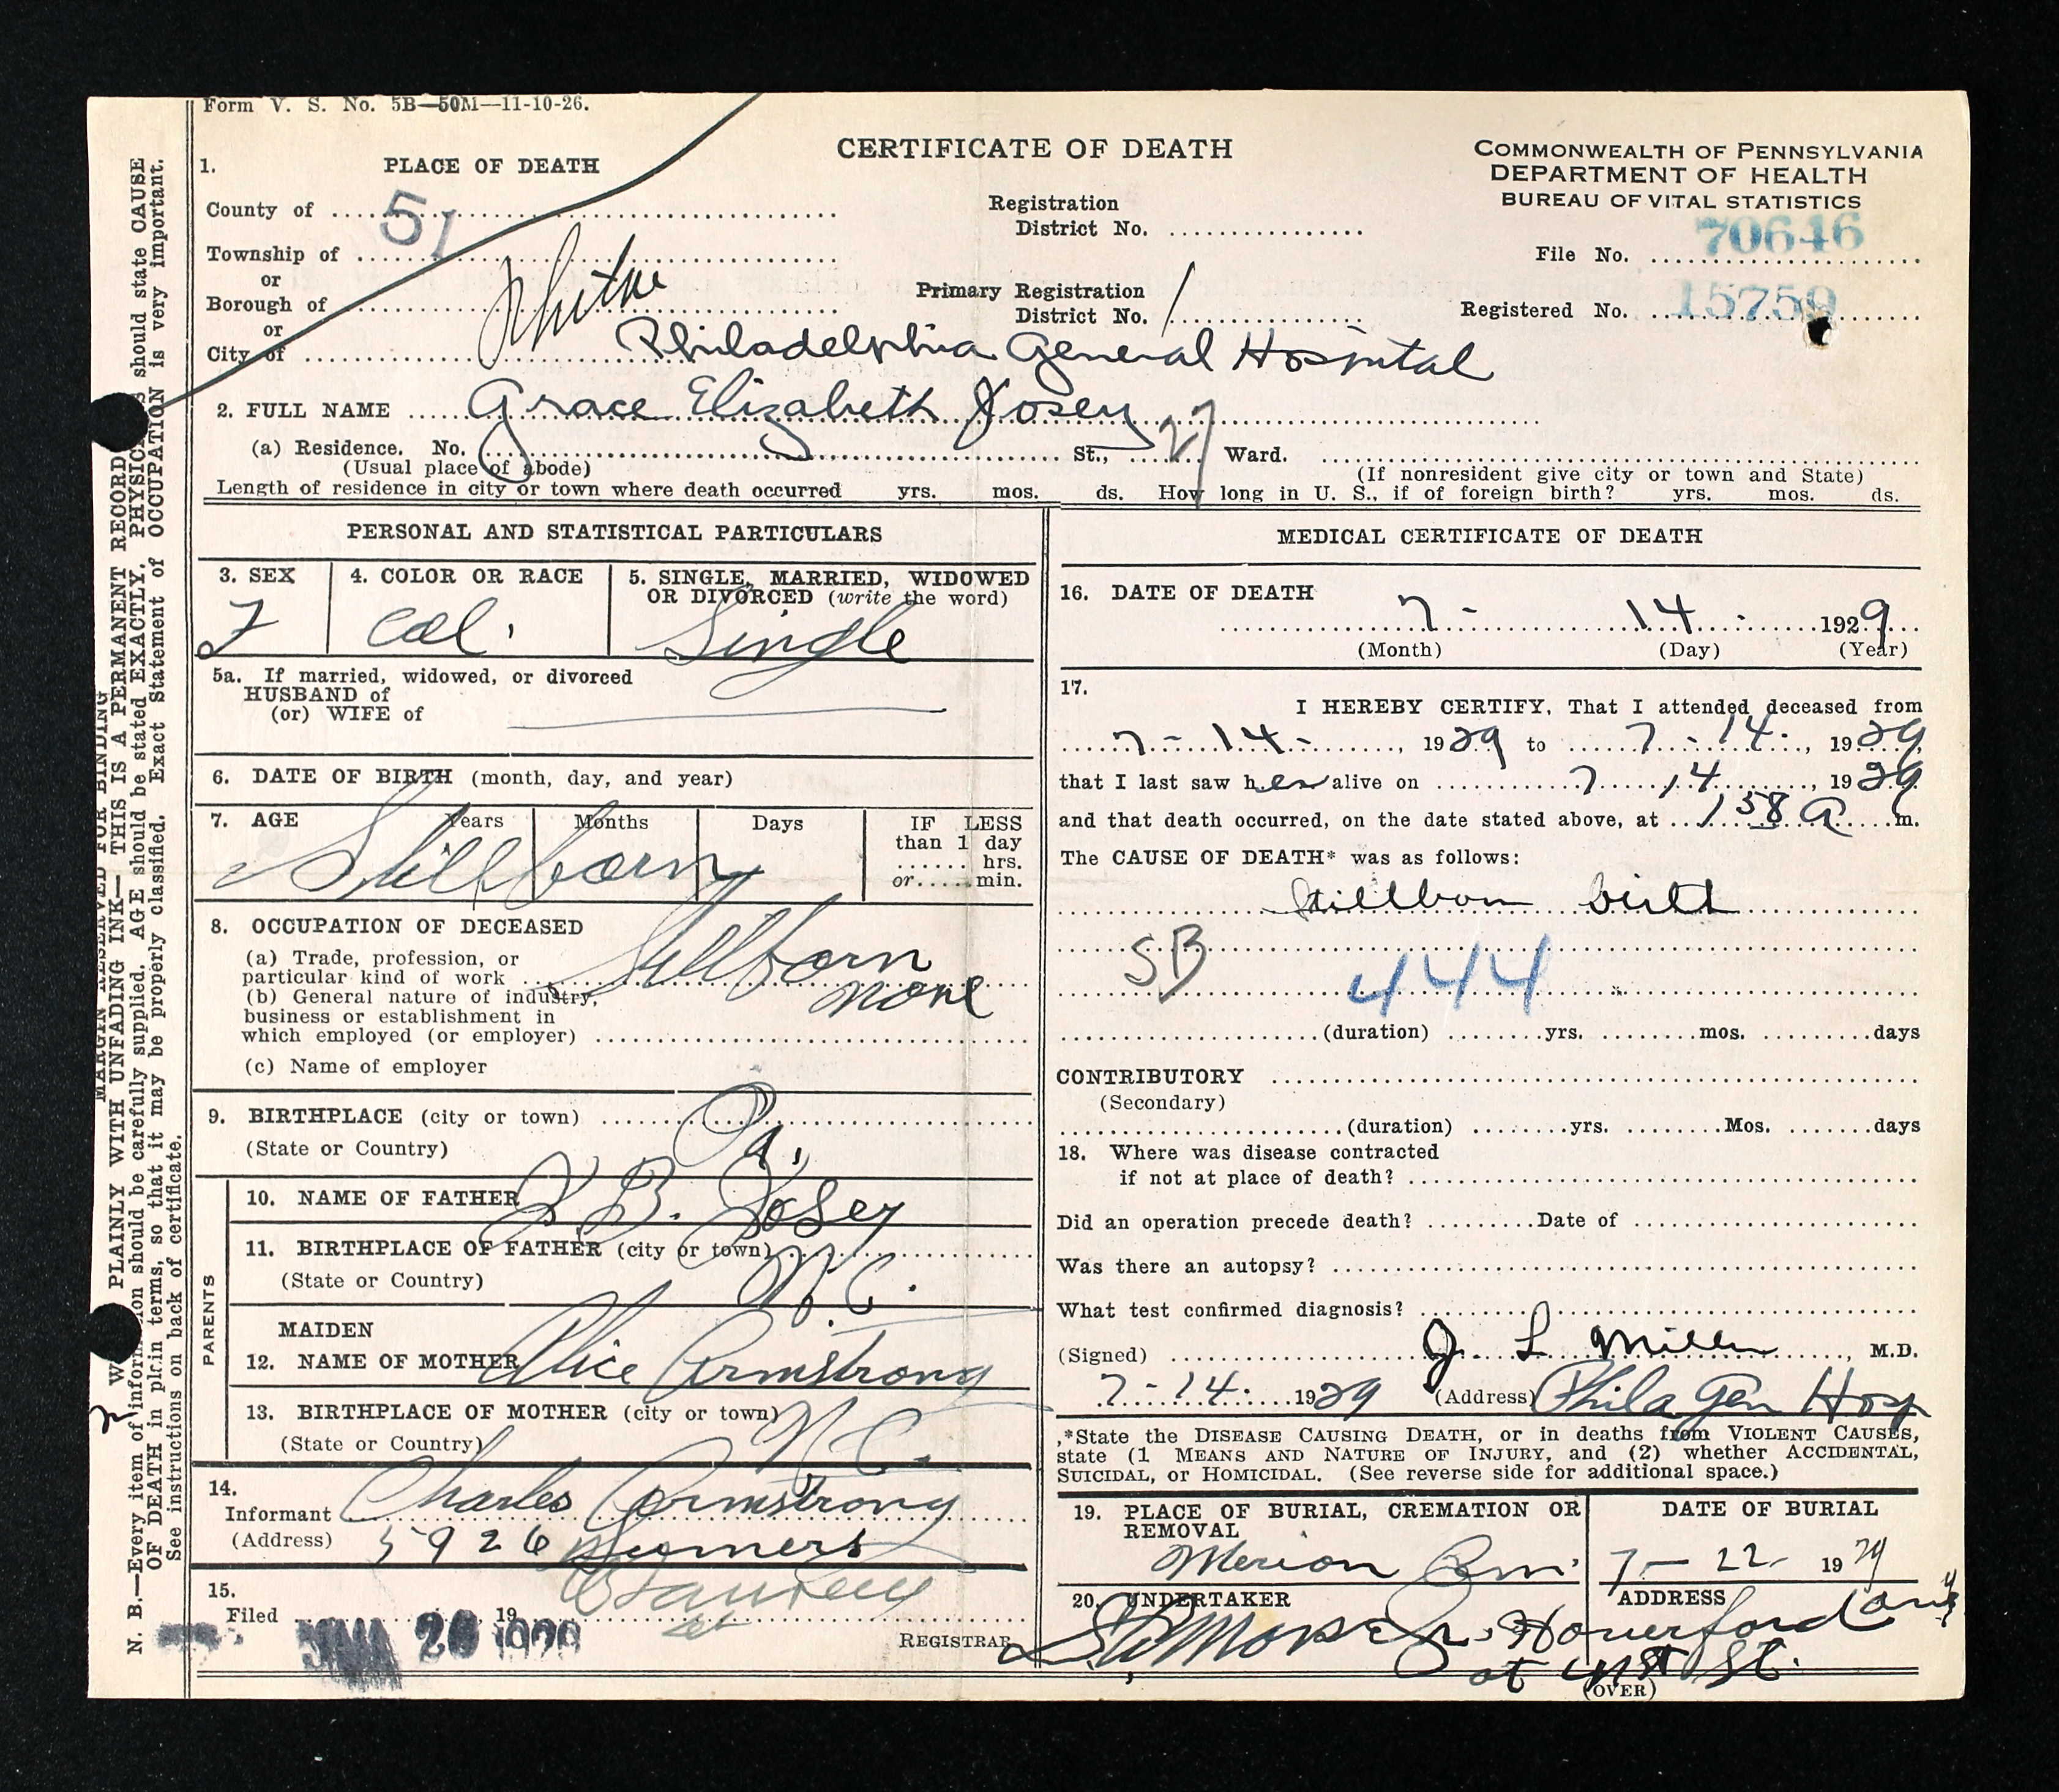 Form V. S. No. 5B—50M—11-10-26.
CERTIFICATE OF DEATH
COMMONWEALTH OF PENNSYLVANIA
DEPARTMENT OF HEALTH
BUREAU OF VITAL STATISTICS
1. PLACE OF DEATH
County of 51
Township of
or
Borough of
or
City of
Registration
District No.
Primary Registration
District No. 1
File No. 70646
Registered No. 15759
Phila
Philadelphia General Hospital
2. FULL NAME Grace Elizabeth Josey
(a) Residence. No. St., 27 Ward.
(Usual place of abode) (If nonresident give city or town and State)
Length of residence in city or town where death occurred yrs. mos. ds. How long in U. S., if of foreign birth? yrs. mos. ds.
PERSONAL AND STATISTICAL PARTICULARS
3. SEX
F
4. COLOR OR RACE
Col.
5. SINGLE, MARRIED, WIDOWED
OR DIVORCED (write the word)
Single
5a. If married, widowed, or divorced
HUSBAND of
(or) WIFE of
6. DATE OF BIRTH (month, day, and year)
7. AGE Years Months Days IF LESS
than 1 day
hrs.
or min.
Stillborn
8. OCCUPATION OF DECEASED
(a) Trade, profession, or
particular kind of work Stillborn
(b) General nature of industry, none
business or establishment in
which employed (or employer)
(c) Name of employer
9. BIRTHPLACE (city or town)
(State or Country) Pa.
PARENTS
10. NAME OF FATHER J. B. Josey
11. BIRTHPLACE OF FATHER (city or town)
(State or Country) N. C.
MAIDEN
12. NAME OF MOTHER Alice Armstrong
13. BIRTHPLACE OF MOTHER (city or town)
(State or Country) N. C.
14.
Informant Charles Armstrong
(Address) 5926 Sumers
15.
Filed 19
REGISTRAR
MEDICAL CERTIFICATE OF DEATH
16. DATE OF DEATH
7 - 14 - 1929
(Month) (Day) (Year)
17.
I HEREBY CERTIFY, That I attended deceased from
7 - 14 -, 1929 to 7 - 14., 1929,
that I last saw her alive on 7 14, 1929
and that death occurred, on the date stated above, at 1 58 A m.
The CAUSE OF DEATH* was as follows:
Stillborn birth
SB 444
(duration) yrs. mos. days
CONTRIBUTORY
(Secondary)
(duration) yrs. Mos. days
18. Where was disease contracted
if not at place of death?
Did an operation precede death? Date of
Was there an autopsy?
What test confirmed diagnosis?
(Signed) J. L Miller, M.D.
7 - 14. 1929 (Address) Phila Gen Hosp
*State the DISEASE CAUSING DEATH, or in deaths from VIOLENT CAUSES,
state (1 MEANS AND NATURE OF INJURY, and (2) whether ACCIDENTAL,
SUICIDAL, or HOMICIDAL. (See reverse side for additional space.)
19. PLACE OF BURIAL, CREMATION OR
REMOVAL
Merion Cem.
DATE OF BURIAL
7 - 22 - 1929
20. UNDERTAKER
ADDRESS
Haverford
at 41st St.
(OVER)
MARGIN RESERVED FOR BINDING
PLAINLY WITH UNFADING INK—THIS IS A PERMANENT RECORD
N. B.—Every item of information should be carefully supplied. AGE should be stated EXACTLY. PHYSICIANS should state CAUSE
OF DEATH in plain terms, so that it may be properly classified. Exact Statement of OCCUPATION is very important.
See instructions on back of certificate.